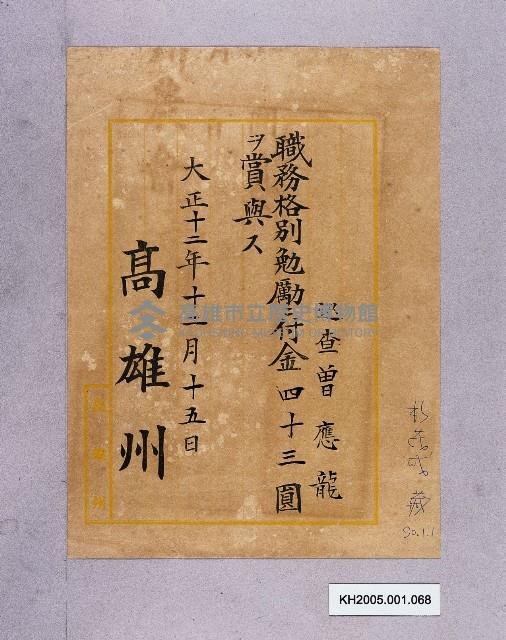 巡查曾應龍
職務格別勉勵付金四十三圓
ヲ賞與ス
大正十二年十二月十五日
高雄州
高雄州
高雄市立歷史博物館
KAOHSIUNG MUSEUM OF HISTORY
藏
90.1.1
KH2005.001.068